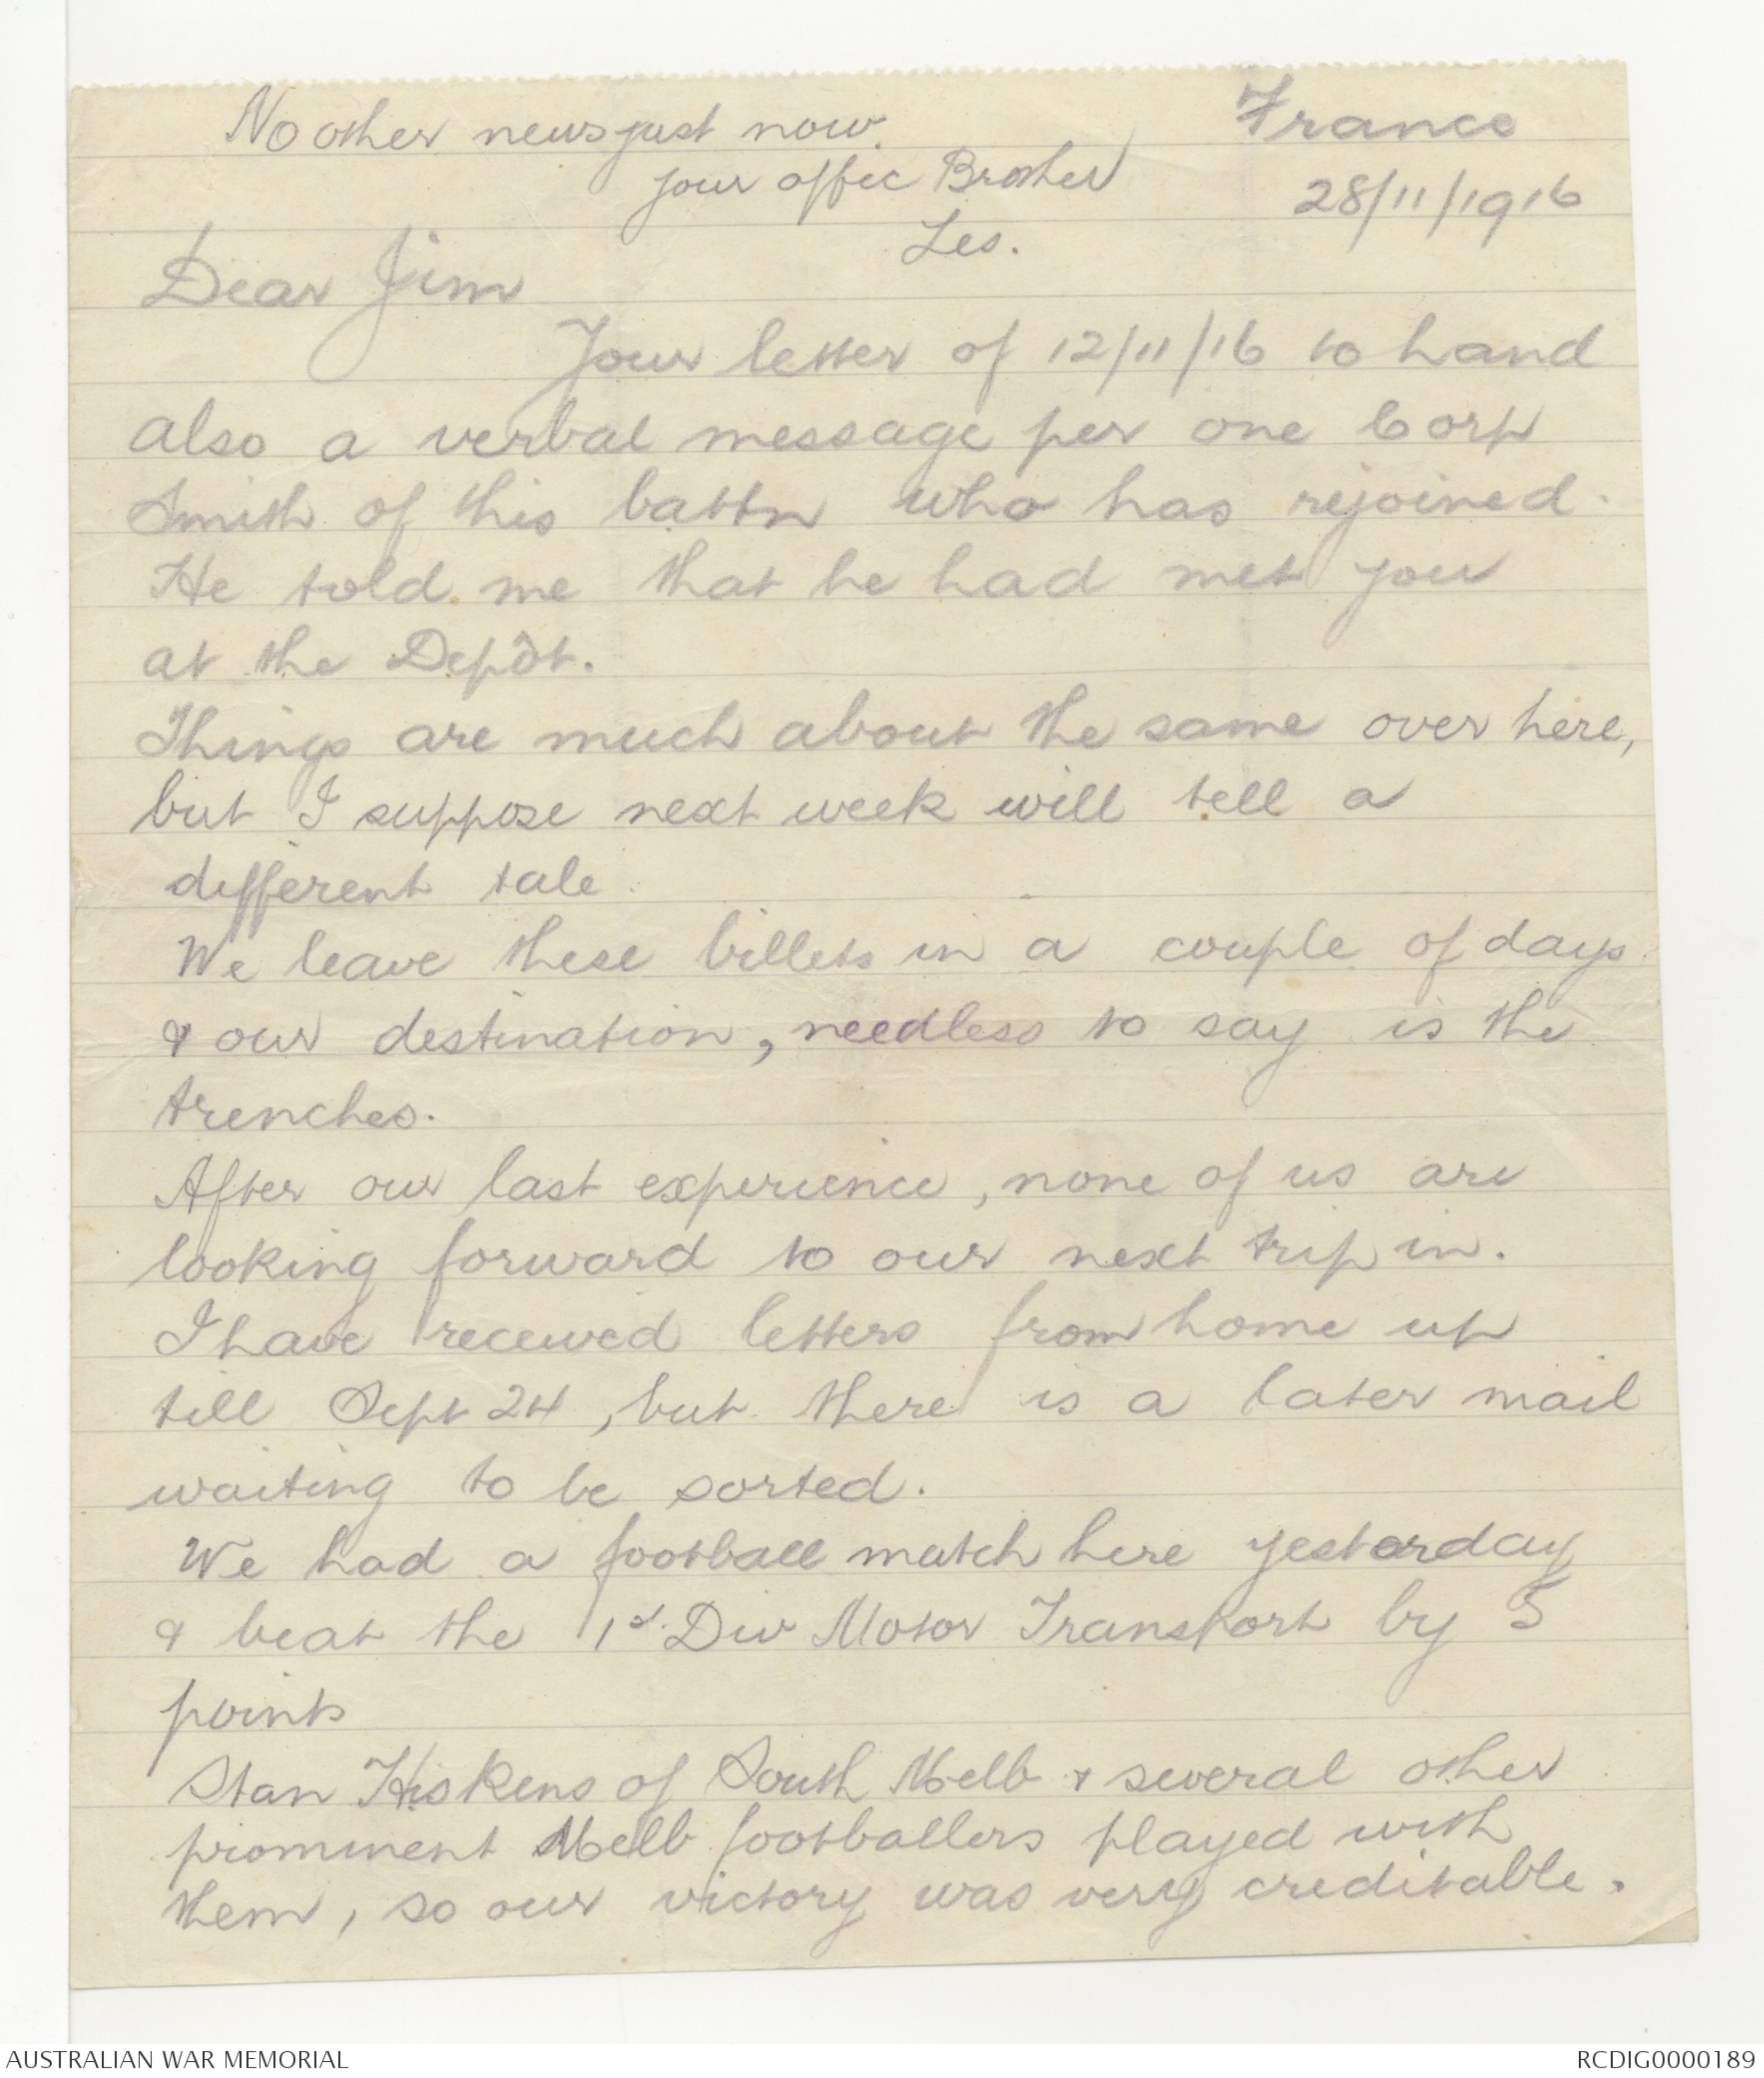 No other news just now.
your affec Brother
Les.
France
28/11/1916
Dear Jim
Your letter of 12/11/16 to hand
also a verbal message per one Corp
Smith of this battn who has rejoined.
He told me that he had met you
at the Depôt.
Things are much about the same over here,
but I suppose next week will tell a
different tale.
We leave these billets in a couple of days
& our destination, needless to say is the
trenches.
After our last experience, none of us are
looking forward to our next trip in.
I have received letters from home up
till Sept 24, but there is a later mail
waiting to be sorted.
We had a football match here yesterday
& beat the 1st Div Motor Transport by 5
points
Stan Hiskens of South Melb & several other
prominent Melb footballers played with
them, so our victory was very creditable.
AUSTRALIAN WAR MEMORIAL
RCDIG0000189